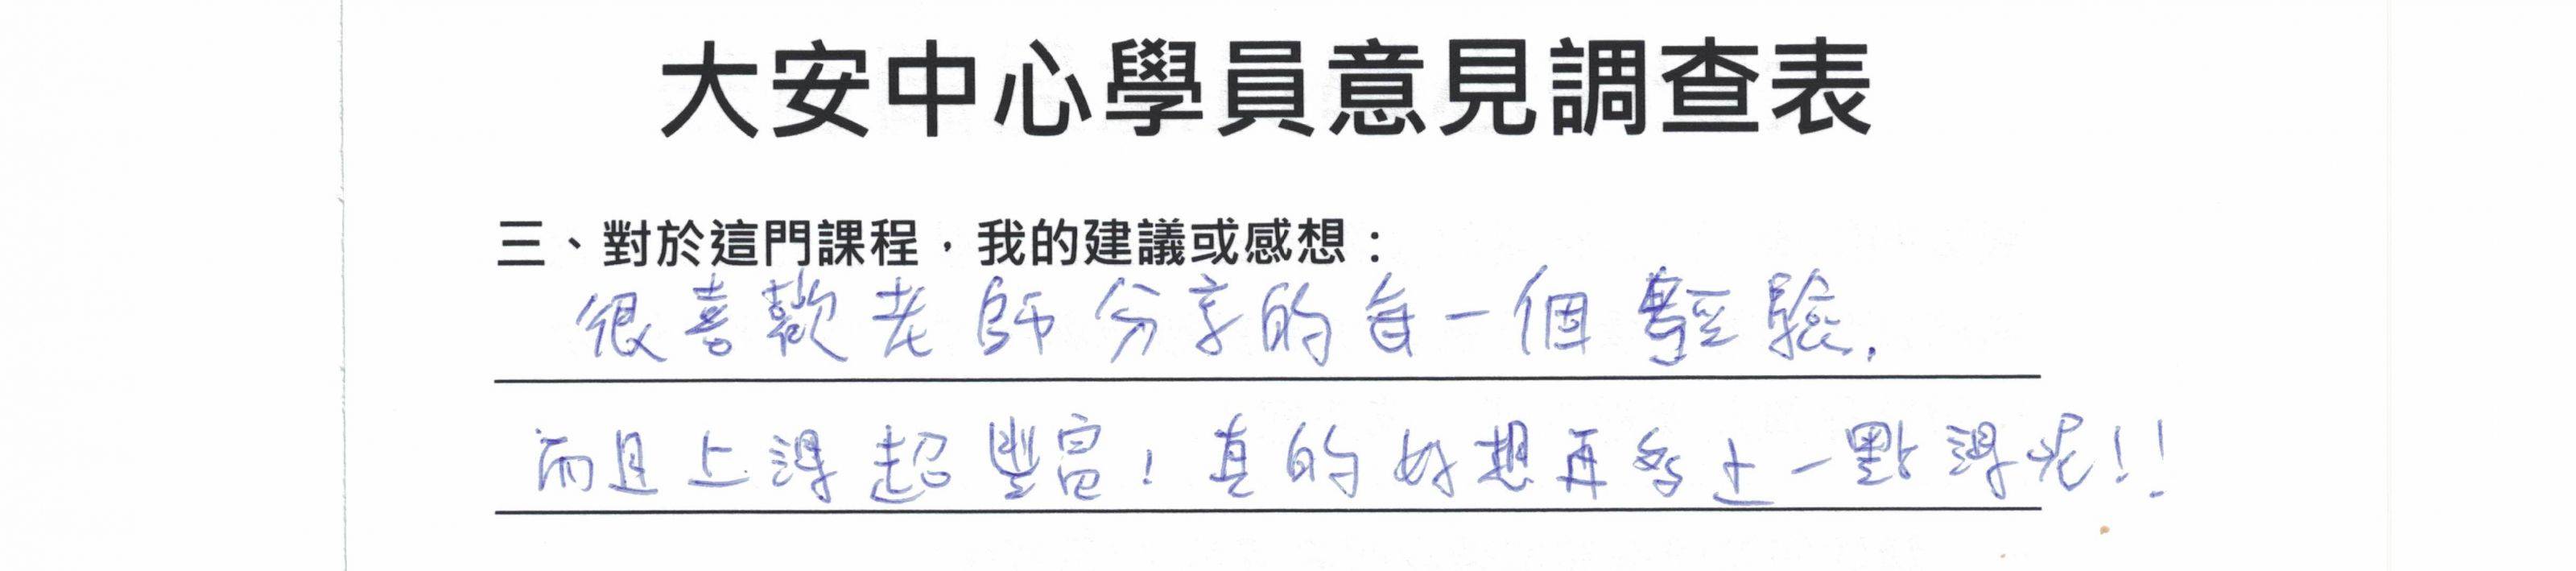 大安中心學員意見調查表
三、對於這門課程，我的建議或感想：
很喜歡老師分享的每一個經驗.
而且上課超豐富!真的好想再多上一點課呢!!